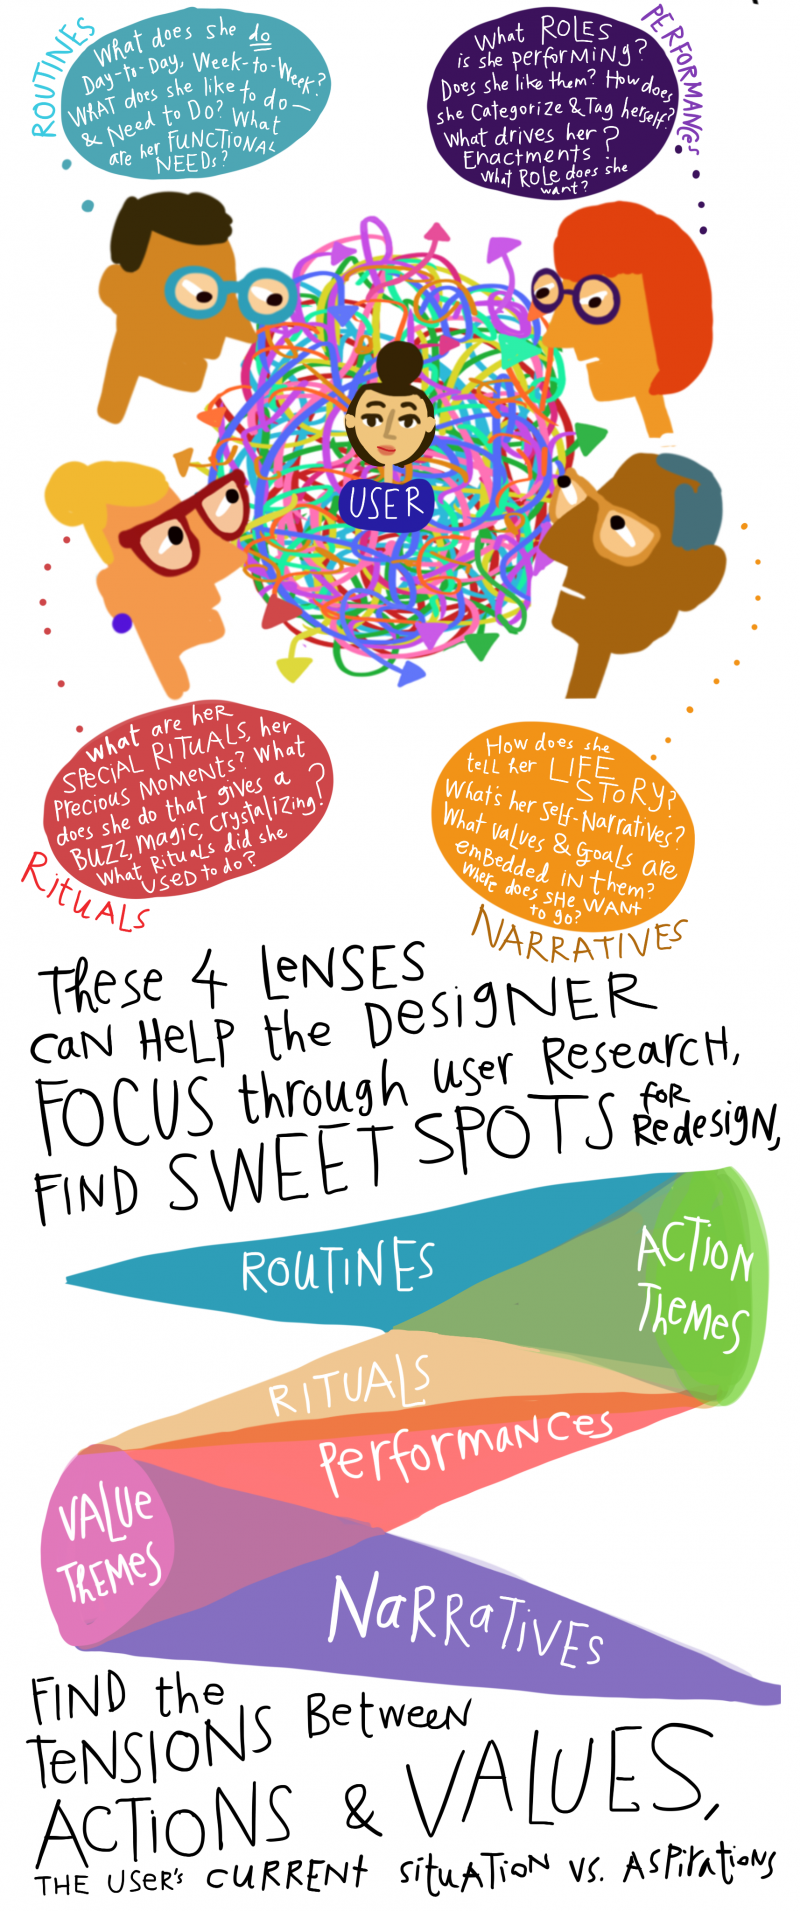 ROUTINES
What does she do
Day-to-Day, Week-to-Week?
WHAT does she like to do—
& Need to Do? What
are her FUNCTIONAL
NEEDs?
PERFORMANCES
What ROLES
is she performing?
Does she like them? How does
she Categorize & Tag herself?
What drives her
Enactments?
What ROLE does she
want?
USER
What are heR
SPECIAL RITUALS, her
Precious Moments? What
does she do that gives a
BUZZ, magic, crystalizing?
What Rituals did she
USED to do?
RituALS
How does she
tell her LIFE
STORY?
What's her Self-Narratives?
What values & Goals are
emBedded IN them?
Where does SHE WANT
to go?
NARRATIVES
These 4 LeNSES
caN HeLP the DesigNER
FOCUS through user Research,
FIND SWEET SPOTS foR
Redesign,
ROUTINES
ACTION
ThEMES
RITUALS
PerformaNces
VALUe
ThEMES
NaRRaTiVES
FIND the
TeNSIONS BetweeN
ACTiONS & VALUES,
THE USeR's CURRENt SituATioN VS. ASPirAtioNS